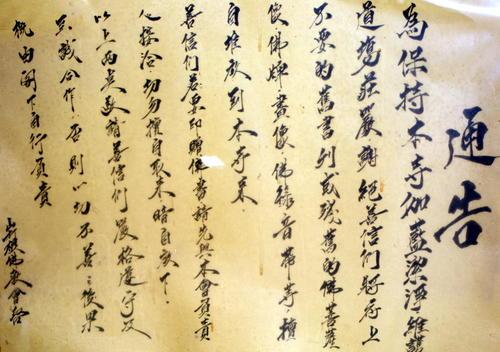 通告
為保持本寺伽藍潔淨維護
道場莊嚴謝絕善信們將府上
不要的舊書刊或殘舊的佛菩薩
像佛牌畫像佛錄音帶等擅
自堆放到本寺來.
善信們若要印贈佛書請先與本會負責
人接洽.切勿擅自取來暗自放下.
以上兩点敬請善信們嚴格遵守及
忠誠合作.否則以切不善之後果
概由閣下自行負責
佛教會啓